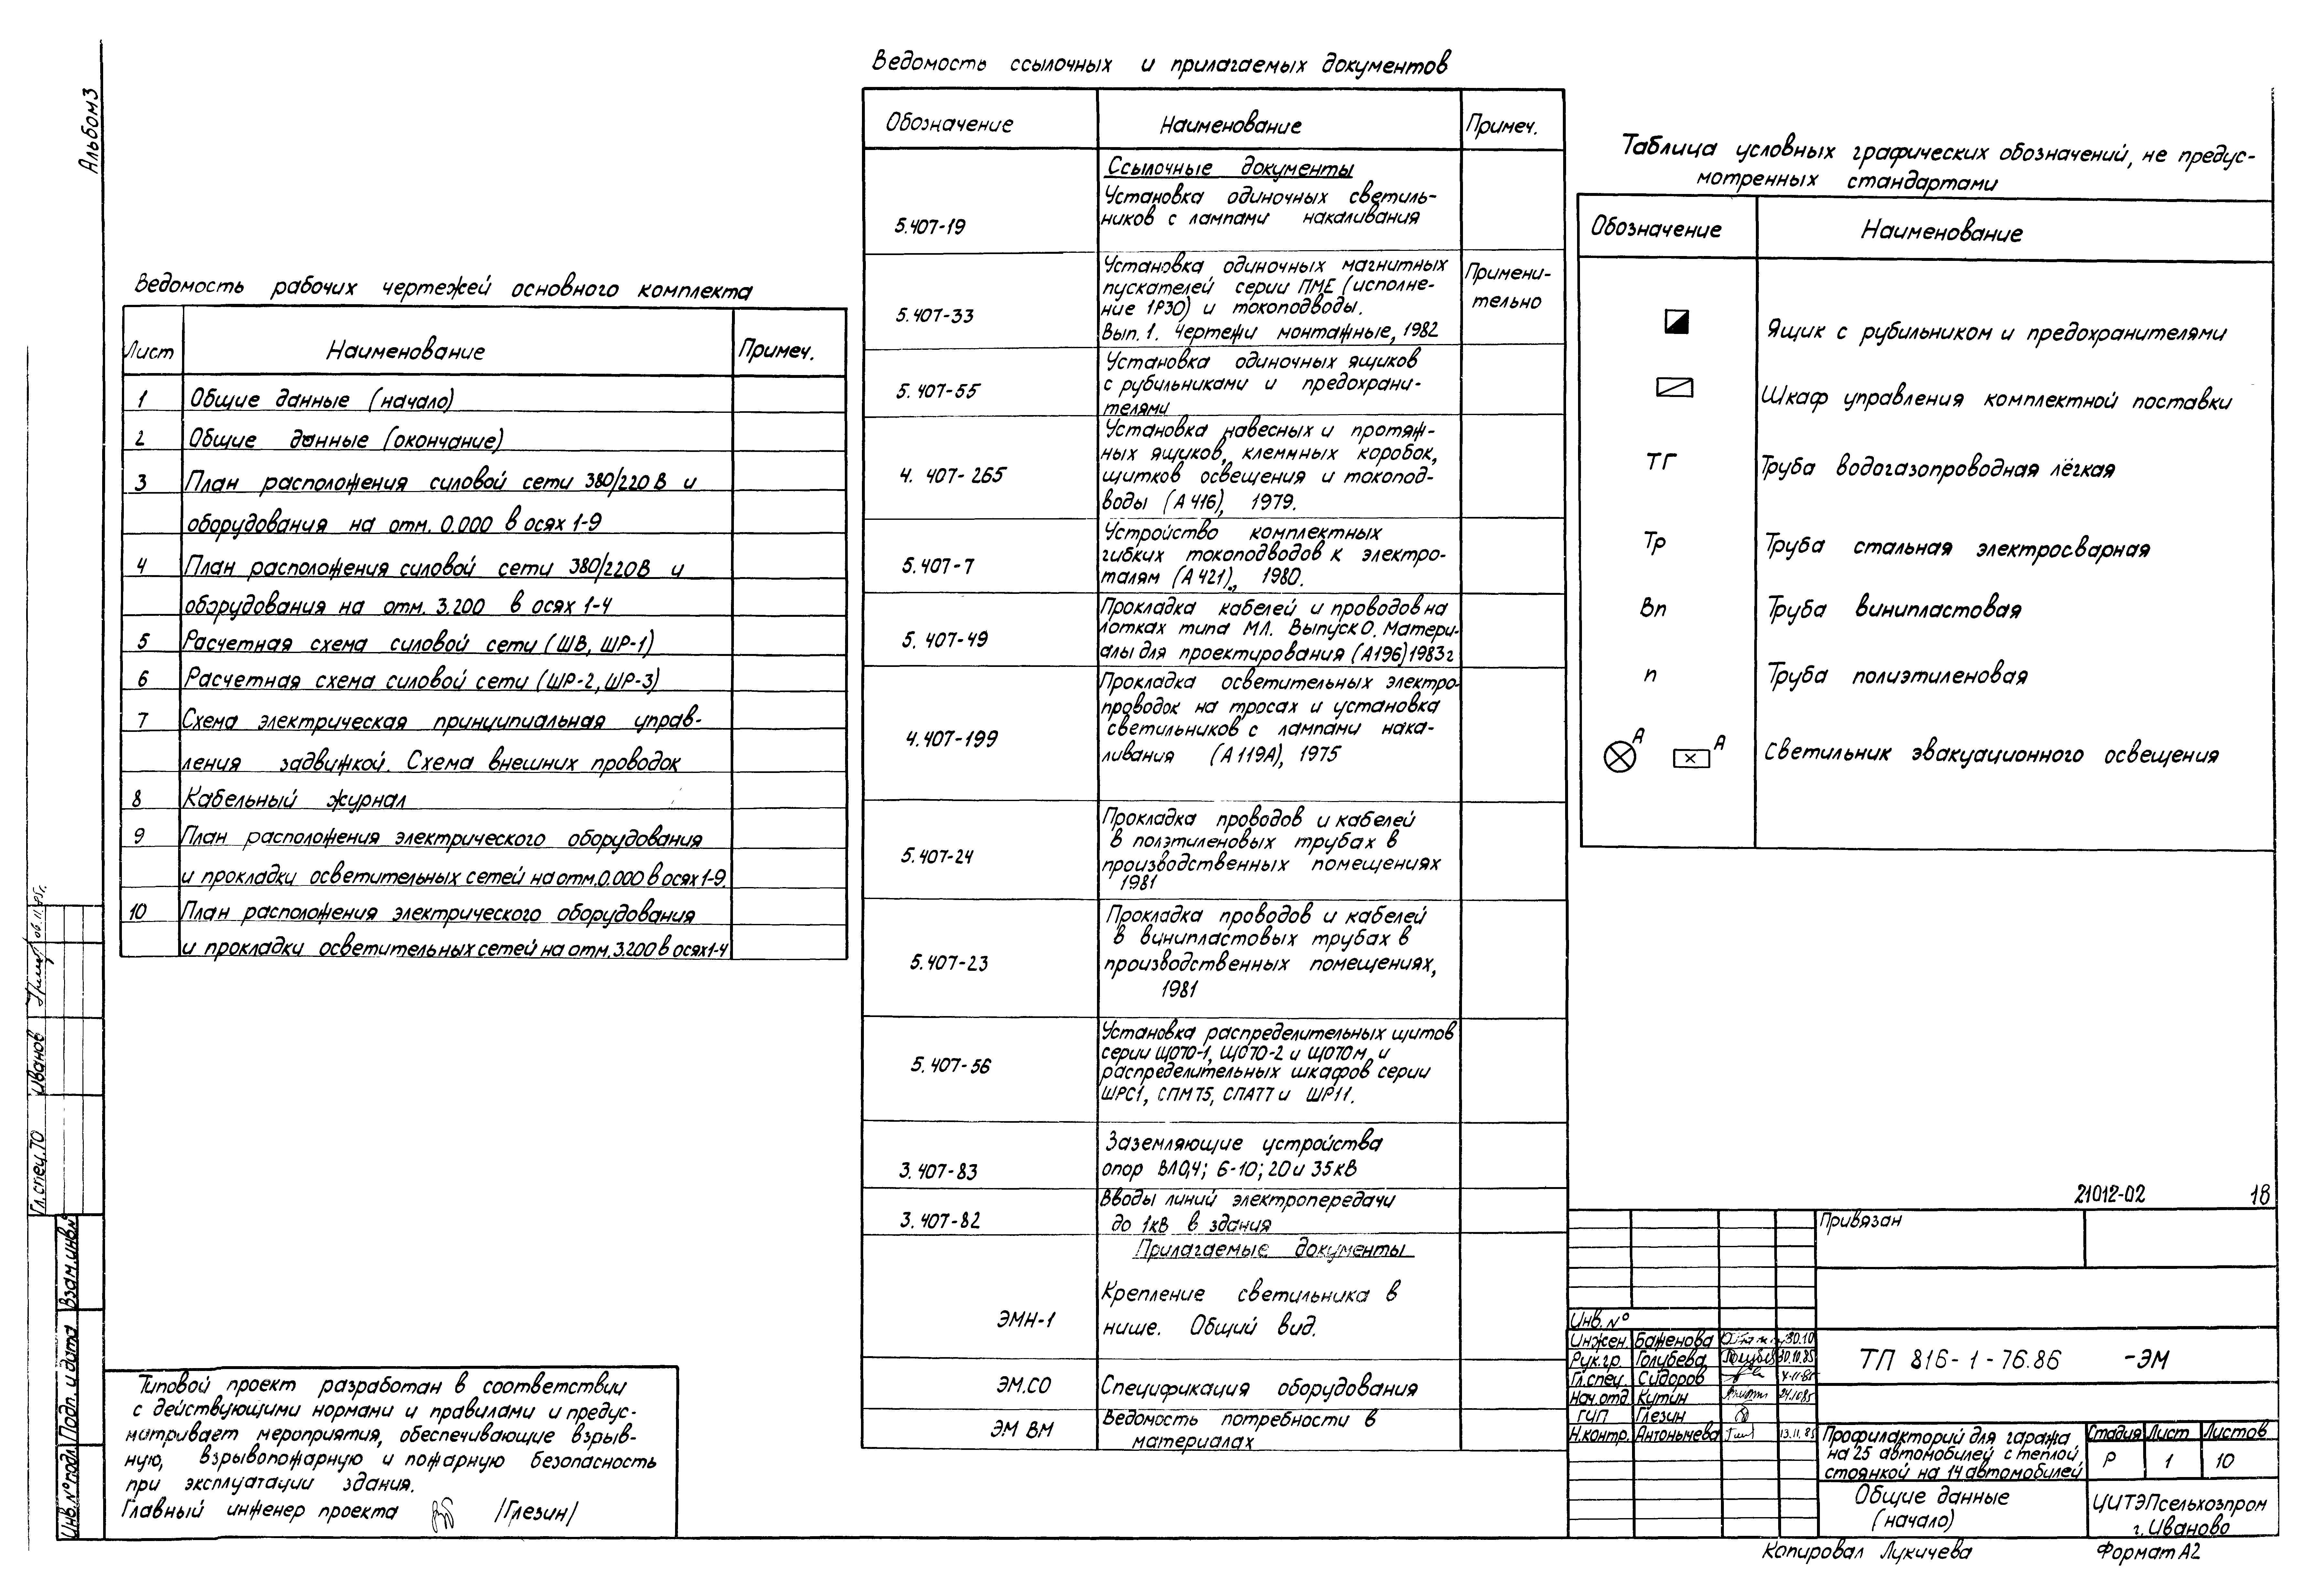 Альбом 3
Ведомость рабочих чертежей основного комплекта
Лист Наименование Примеч.
1 Общие данные (начало)
2 Общие данные (окончание)
3 План расположения силовой сети 380/220 В и
оборудования на отм. 0.000 в осях 1-9
4 План расположения силовой сети 380/220 В и
оборудования на отм. 3.200 в осях 1-4
5 Расчетная схема силовой сети (ШВ, ШР-1)
6 Расчетная схема силовой сети (ШР-2, ШР-3)
7 Схема электрическая принципиальная управ-
ления задвижкой. Схема внешних проводок
8 Кабельный журнал
9 План расположения электрического оборудования
и прокладки осветительных сетей на отм. 0.000 в осях 1-9.
10 План расположения электрического оборудования
и прокладки осветительных сетей на отм. 3.200 в осях 1-4
Типовой проект разработан в соответствии
с действующими нормами и правилами и предус-
матривает мероприятия, обеспечивающие взрыв-
ную, взрывопожарную и пожарную безопасность
при эксплуатации здания.
Главный инженер проекта /Глезин/
Ведомость ссылочных и прилагаемых документов
Обозначение Наименование Примеч.
Ссылочные документы
Установка одиночных светиль-
ников с лампами накаливания
5.407-19
Установка одиночных магнитных Примени-
пускателей серии ПМЕ (исполне-
ние 1Р30) и токоподводы. тельно
5.407-33
Вып. 1. Чертежи монтажные, 1982
Установка одиночных ящиков
5.407-55 с рубильниками и предохрани-
телями
Установка навесных и протяж-
ных ящиков, клеммных коробок,
4.407-265 щитков освещения и токопод-
воды (А416), 1979.
Устройство комплектных
гибких токоподводов к электро-
5.407-7 талям (А421), 1980.
Прокладка кабелей и проводов на
5.407-49 лотках типа МЛ. Выпуск 0. Матери-
алы для проектирования (А196) 1983г
Прокладка осветительных электро-
проводок на тросах и установка
4.407-199 светильников с лампами нака-
ливания (А119А), 1975
Прокладка проводов и кабелей
в полэтиленовых трубах в
5.407-24 производственных помещениях
1981
Прокладка проводов и кабелей
в винипластовых трубах в
5.407-23 производственных помещениях,
1981
Установка распределительных щитов
серии ЩО70-1, ЩО70-2 и ЩО70М и
5.407-56 распределительных шкафов серии
ШРС1, СПМ75, СПА77 и ШР11.
Заземляющие устройства
3.407-83 опор ВЛ0,4; 6-10; 20 и 35кВ
Вводы линий электропередачи
3.407-82 до 1кВ в здания
Прилагаемые документы
Крепление светильника в
ЭМН-1 нише. Общий вид.
ЭМ.СО Спецификация оборудования
ЭМ ВМ Ведомость потребности в
материалах
Таблица условных графических обозначений, не предус-
мотренных стандартами
Обозначение Наименование
Ящик с рубильником и предохранителями
Шкаф управления комплектной поставки
ТГ Труба водогазопроводная лёгкая
Тр Труба стальная электросварная
Вп Труба винипластовая
п Труба полиэтиленовая
А А Светильник эвакуационного освещения
21012-02 18
Привязан
Инв. №
Инжен. Баженова 30.10
Рук.гр. Голубева 30.10.85
Гл.спец. Сидоров 4.11.85
Нач.отд. Кутин 24.10.85
ГИП Глезин
Н.контр. Антонычева 13.11.85
ТП 816-1-76.86 -ЭМ
Профилакторий для гаража
на 25 автомобилей с теплой
стоянкой на 14 автомобилей
Стадия Лист Листов
Р 1 10
Общие данные
(начало)
ЦИТЭПсельхозпром
г. Иваново
Копировал Лукичева Формат А2
Гл. спец. ТО Иванов 06.11.85г.
Взам.инв.№
Подп. и дата
Инв.№подл.